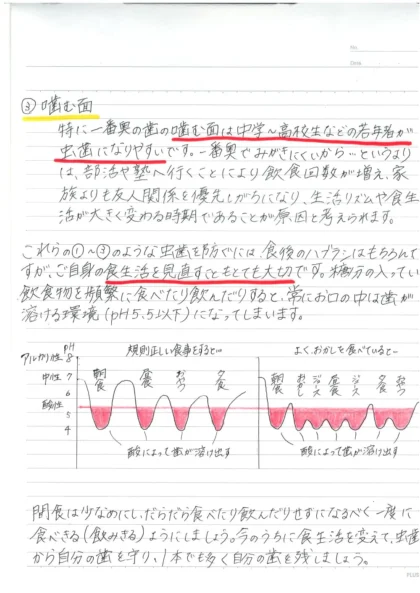 No.
Date
③ 噛む面
特に一番奥の歯の噛む面は中学〜高校生などの若年者が
虫歯になりやすいです。一番奥でみがきにくいから…というより
は、部活や塾へ行くことにより飲食回数が増え、家
族よりも友人関係を優先しがちになり、生活リズムや食生
活が大きく変わる時期であることが原因と考えられます。
これらの①〜③のような虫歯を防ぐには、食後のハブラシはもちろんで
すが、ご自身の食生活を見直すこともとても大切です。糖分の入ってい
飲食物を頻繁に食べたり飲んだりすると、常にお口の中は歯が
溶ける環境(pH5.5以下)になってしまいます。
pH
アルカリ性 8
中性 7
6
酸性
5
4
規則正しい食事をすると…
朝食 昼食 おやつ 夕食
酸によって歯が溶け出す
よくおかしを食べていると…
朝食 おかし ジュース 昼食 ジュース 夕食 おやつ
酸によって歯が溶け出す
間食は少なめにし、だらだら食べたり飲んだりせずになるべく一度に
食べきる(飲みきる)ようにしましょう。今のうちに食生活を変えて、虫歯
から自分の歯を守り、1本でも多く自分の歯を残しましょう。
PLUS